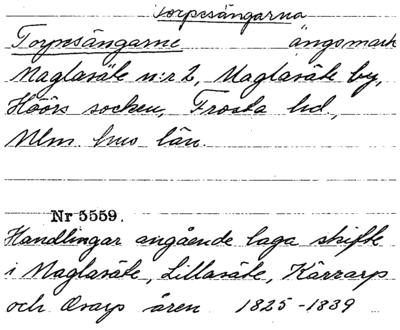 Torpesängarna
Torpesängarne ängsmark
Maglasäte n:r 2, Maglasäte by,
Höörs socken, Frosta hd,
Mlm. hus län.
Nr 5559.
Handlingar angående laga skifte
i Maglasäte, Lillasäte, Kärrarp
och Orarp åren 1825-1839